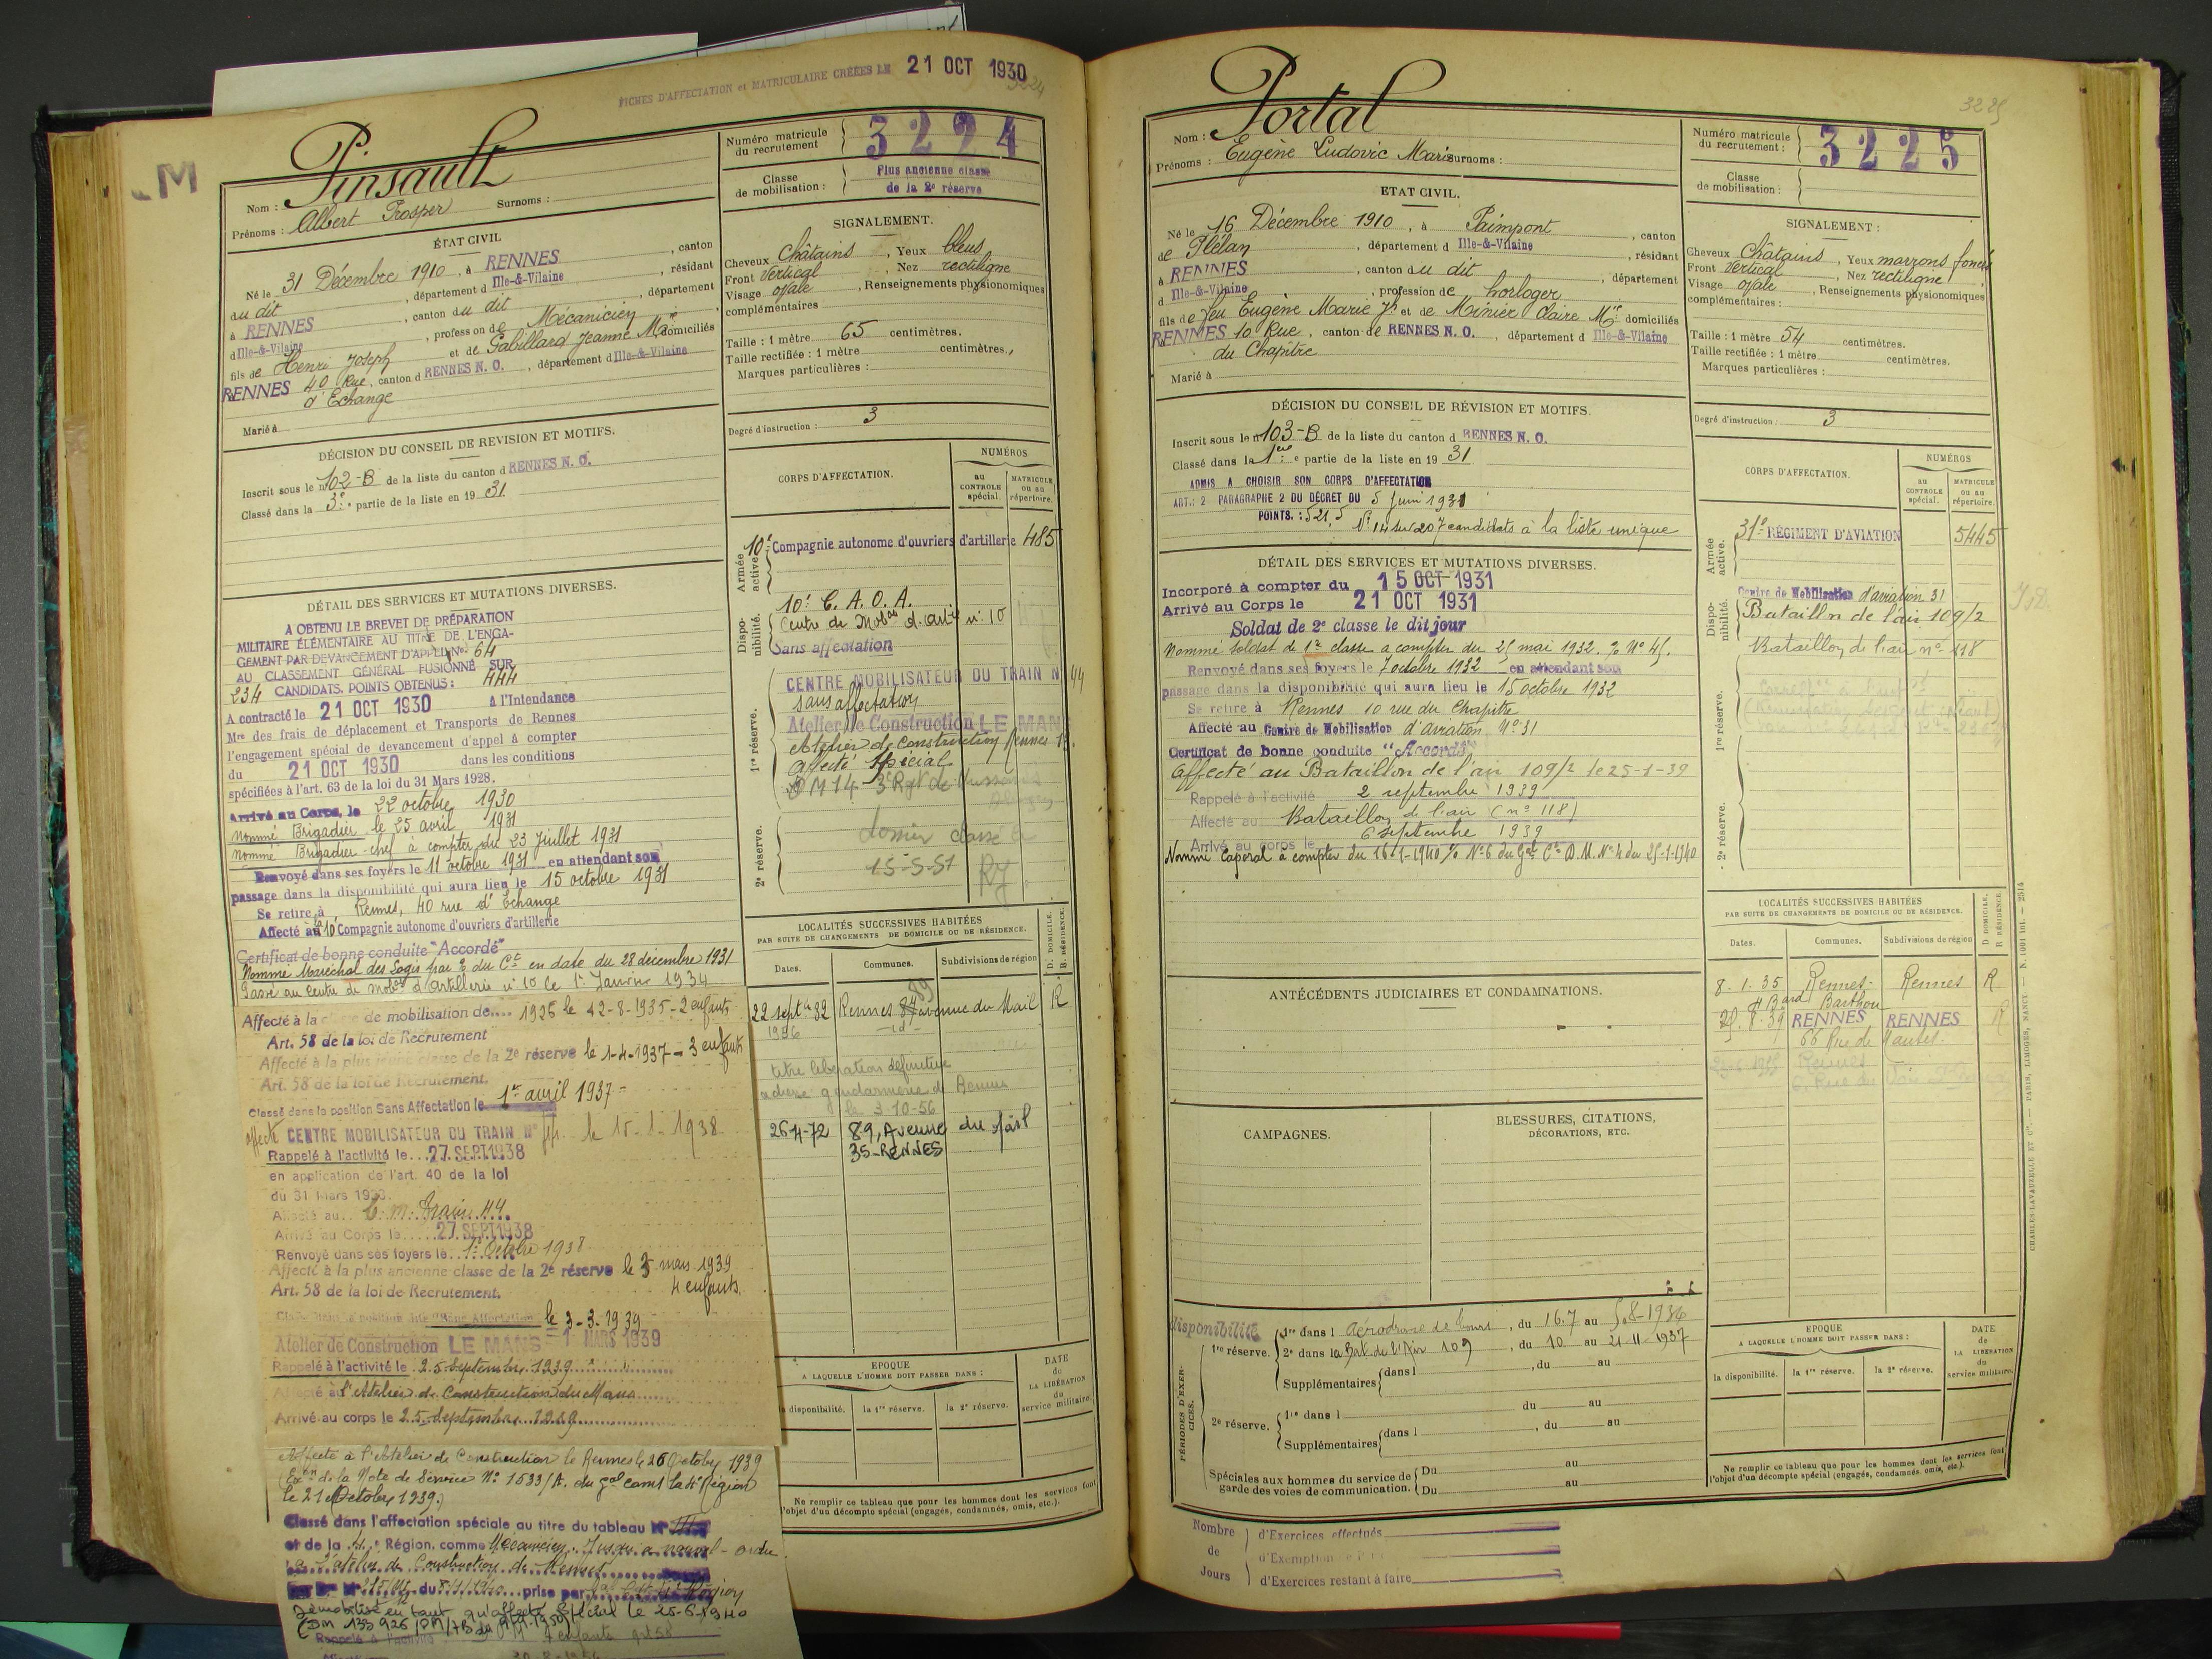 FICHES D'AFFECTATION et MATRICULAIRE CRÉÉES LE 21 OCT 1930
3224
M
Nom : Pinsault
Prénoms : Albert Prosper Surnoms :
ÉTAT CIVIL
Né le 31 Décembre 1910, à RENNES, canton
du dit, département d Ille-&-Vilaine, résidant
à RENNES, canton du dit, département
d Ille-&-Vilaine, profession de Mécanicien
fils de Henri Joseph et de Gabillard Jeanne Mie domiciliés
à RENNES 40 Rue, canton d RENNES N. O., département d Ille-&-Vilaine
d'Echange
Marié à
DÉCISION DU CONSEIL DE REVISION ET MOTIFS.
Inscrit sous le n° 102-B de la liste du canton d RENNES N. O.
Classé dans la 3e partie de la liste en 19 31
DÉTAIL DES SERVICES ET MUTATIONS DIVERSES.
A OBTENU LE BREVET DE PRÉPARATION
MILITAIRE ÉLÉMENTAIRE AU TITRE DE L'ENGA-
GEMENT PAR DEVANCEMENT D'APPEL. No. 64
AU CLASSEMENT GÉNÉRAL FUSIONNÉ SUR
234 CANDIDATS. POINTS OBTENUS : 444
A contracté le 21 OCT 1930 à l'Intendance
Mre des frais de déplacement et Transports de Rennes
l'engagement spécial de devancement d'appel à compter
du 21 OCT 1930 dans les conditions
spécifiées à l'art. 63 de la loi du 31 Mars 1928.
Arrivé au Corps, le 22 octobre 1930
Nommé Brigadier le 25 avril 1931
Nommé Brigadier-chef à compter du 23 Juillet 1931
Renvoyé dans ses foyers le 11 octobre 1931 en attendant son
passage dans la disponibilité qui aura lieu le 15 octobre 1931
Se retire à Rennes, 40 rue d'Echange
Affecté à la 10e Compagnie autonome d'ouvriers d'artillerie
Certificat de bonne conduite "Accordé"
Nommé Maréchal des Logis par du Ct en date du 28 décembre 1931
Passé au Centre de Mobon d'Artillerie n° 10 le 1er Janvier 1934
Affecté à la classe de mobilisation de.... 1926 le 12-8-1935 - 2 enfants
Art. 58 de la loi de Recrutement
Affecté à la plus jeune classe de la 2e réserve le 1-4-1937 - 3 enfants
Art. 58 de la loi de Recrutement.
Classé dans la position Sans Affectation le 1er avril 1937 =
affecté CENTRE MOBILISATEUR DU TRAIN N° 44 le 15-1-1938
Rappelé à l'activité le...27 SEPT 1938
en application de l'art. 40 de la loi
du 31 Mars 1928.
Affecté au.. C. M. Train. 44.
Arrivé au Corps le.....27 SEPT 1938
Renvoyé dans ses foyers le..1er Octobre 1938
Affecté à la plus ancienne classe de la 2e réserve le 3 mars 1939
Art. 58 de la loi de Recrutement. 4 enfants.
le 3-3-1939
Atelier de Construction LE MANS = 1 MARS 1939
Rappelé à l'activité le 25 Septembre 1939
Affecté à l'Atelier de Construction du Mans
Arrivé au corps le 25 Septembre 1939
Affecté à l'Atelier de Construction de Rennes le 26 Octobre 1939
(Exon de la Note de Service N° 1533/A. du Gal comt la 4e Région
le 21 Octobre 1939.)
Classé dans l'affectation spéciale au titre du tableau N° III
et de la 4e Région, comme Mécanicien. Jusqu'à nouvel ordre
à l'atelier de Construction de Rennes
prise par Région
Démobilisé en tant qu'affecté Spécial le 25-6-1940
Rappelé à l'activité 4 enfants art 58
Numéro matricule du recrutement 3224
Classe de mobilisation : Plus ancienne classe
de la 2e réserve
SIGNALEMENT.
Cheveux Châtains, Yeux bleus
Front Vertical, Nez rectiligne
Visage ovale, Renseignements physionomiques
complémentaires
Taille : 1 mètre 65 centimètres.
Taille rectifiée : 1 mètre centimètres.
Marques particulières :
Degré d'instruction : 3
CORPS D'AFFECTATION.
NUMÉROS
au CONTROLE spécial.
MATRICULE ou au répertoire.
Armée active.
10e Compagnie autonome d'ouvriers d'artillerie 485
Disponibilité.
10e C. A. O. A.
Centre de Mobon d'artie n° 10
Sans affectation
1re réserve.
CENTRE MOBILISATEUR DU TRAIN N° 44
sans affectation
Atelier de Construction LE MANS
Atelier de Construction Rennes
Affecté Spécial
DM 14 3e Rgt de Hussards
2e réserve.
dossier classé le
15-5-51
LOCALITÉS SUCCESSIVES HABITÉES
PAR SUITE DE CHANGEMENTS DE DOMICILE OU DE RÉSIDENCE.
D. DOMICILE. R. RÉSIDENCE.
Dates. Communes. Subdivisions de région
22 septbre 32 Rennes 89 avenue du Mail R
1936 id
titre libération définitive
adressé gendarmerie de Rennes
le 3-10-56
26-4-72 89, Avenue du Mail
35-RENNES
EPOQUE
A LAQUELLE L'HOMME DOIT PASSER DANS :
la disponibilité. la 1re réserve. la 2e réserve.
DATE de LA LIBÉRATION du service militaire.
Ne remplir ce tableau que pour les hommes dont les services font
l'objet d'un décompte spécial (engagés, condamnés, omis, etc.).
3225
Nom : Portal
Prénoms : Eugène Ludovic Marie Surnoms :
ETAT CIVIL.
Né le 16 Décembre 1910, à Paimpont, canton
de Plélan, département d Ille-&-Vilaine, résidant
à RENNES, canton du dit, département
d Ille-&-Vilaine, profession de horloger
fils de feu Eugène Marie Jh et de Minier Claire Mie domiciliés
à RENNES 10 Rue, canton de RENNES N. O., département d Ille-&-Vilaine
du Chapitre
Marié à
DÉCISION DU CONSEIL DE RÉVISION ET MOTIFS.
Inscrit sous le n° 103-B de la liste du canton d RENNES N. O.
Classé dans la 1ère partie de la liste en 19 31
ADMIS A CHOISIR SON CORPS D'AFFECTATION
ART.: 2 PARAGRAPHE 2 DU DÉCRET DU 5 Juin 1931
POINTS. : 521,5 N° 14 sur 207 candidats à la liste unique
DÉTAIL DES SERVICES ET MUTATIONS DIVERSES.
Incorporé à compter du 15 OCT 1931
Arrivé au Corps le 21 OCT 1931
Soldat de 2e classe le dit jour
Nommé soldat de 1re classe à compter du 25 mai 1932. N° 45.
Renvoyé dans ses foyers le 7 octobre 1932 en attendant son
passage dans la disponibilité qui aura lieu le 15 octobre 1932
Se retire à Rennes 10 rue du Chapitre
Affecté au Centre de Mobilisation d'aviation N° 31
Certificat de bonne conduite "Accordé"
Affecté au Bataillon de l'air 109/2 le 25-1-39
Rappelé à l'activité 2 septembre 1939
Affecté au Bataillon de l'air (n° 118)
Arrivé au corps le 6 Septembre 1939
Nommé Caporal à compter du 16-1-1940 N° 6 du Gal Ct D.M. N° 4 du 25-1-1940
ANTÉCÉDENTS JUDICIAIRES ET CONDAMNATIONS.
CAMPAGNES.
BLESSURES, CITATIONS,
DÉCORATIONS, ETC.
PÉRIODES D'EXERCICES.
disponibilité
1re réserve.
1re dans l Aérodrome de Tours, du 16.7 au 5.8-1936
2e dans la Bat. de l'Air 109, du 10 au 21-11-1937
Supplémentaires dans l , du au
2e réserve.
1re dans l du au
Supplémentaires dans l , du au
Spéciales aux hommes du service de garde des voies de communication.
Du au
Du au
Nombre de Jours
d'Exercices effectués
d'Exemption
d'Exercices restant à faire
Numéro matricule du recrutement : 3225
Classe de mobilisation :
SIGNALEMENT :
Cheveux Châtains, Yeux marrons foncés
Front Vertical, Nez rectiligne
Visage ovale, Renseignements physionomiques
complémentaires :
Taille : 1 mètre 54 centimètres.
Taille rectifiée : 1 mètre centimètres.
Marques particulières :
Degré d'instruction : 3
CORPS D'AFFECTATION.
NUMÉROS
au CONTROLE spécial.
MATRICULE ou au répertoire.
Armée active.
31e RÉGIMENT D'AVIATION 5445
Disponibilité.
Centre de Mobilisation d'aviation 31
Bataillon de l'air 109/2
Bataillon de l'air n° 118
1re réserve.
2e réserve.
LOCALITÉS SUCCESSIVES HABITÉES
PAR SUITE DE CHANGEMENTS DE DOMICILE OU DE RÉSIDENCE.
D DOMICILE. R RÉSIDENCE.
Dates. Communes. Subdivisions de région
8-1-35 Rennes Rennes R
4 Bard Barthou
25.8.39 RENNES RENNES R
66 Rue de Nantes.
Rennes
EPOQUE
A LAQUELLE L'HOMME DOIT PASSER DANS :
la disponibilité. la 1re réserve. la 2e réserve.
DATE de LA LIBÉRATION du service militaire.
Ne remplir ce tableau que pour les hommes dont les services font
l'objet d'un décompte spécial (engagés, condamnés, omis, etc.).
CHARLES-LAVAUZELLE ET Cie. — PARIS, LIMOGES, NANCY.